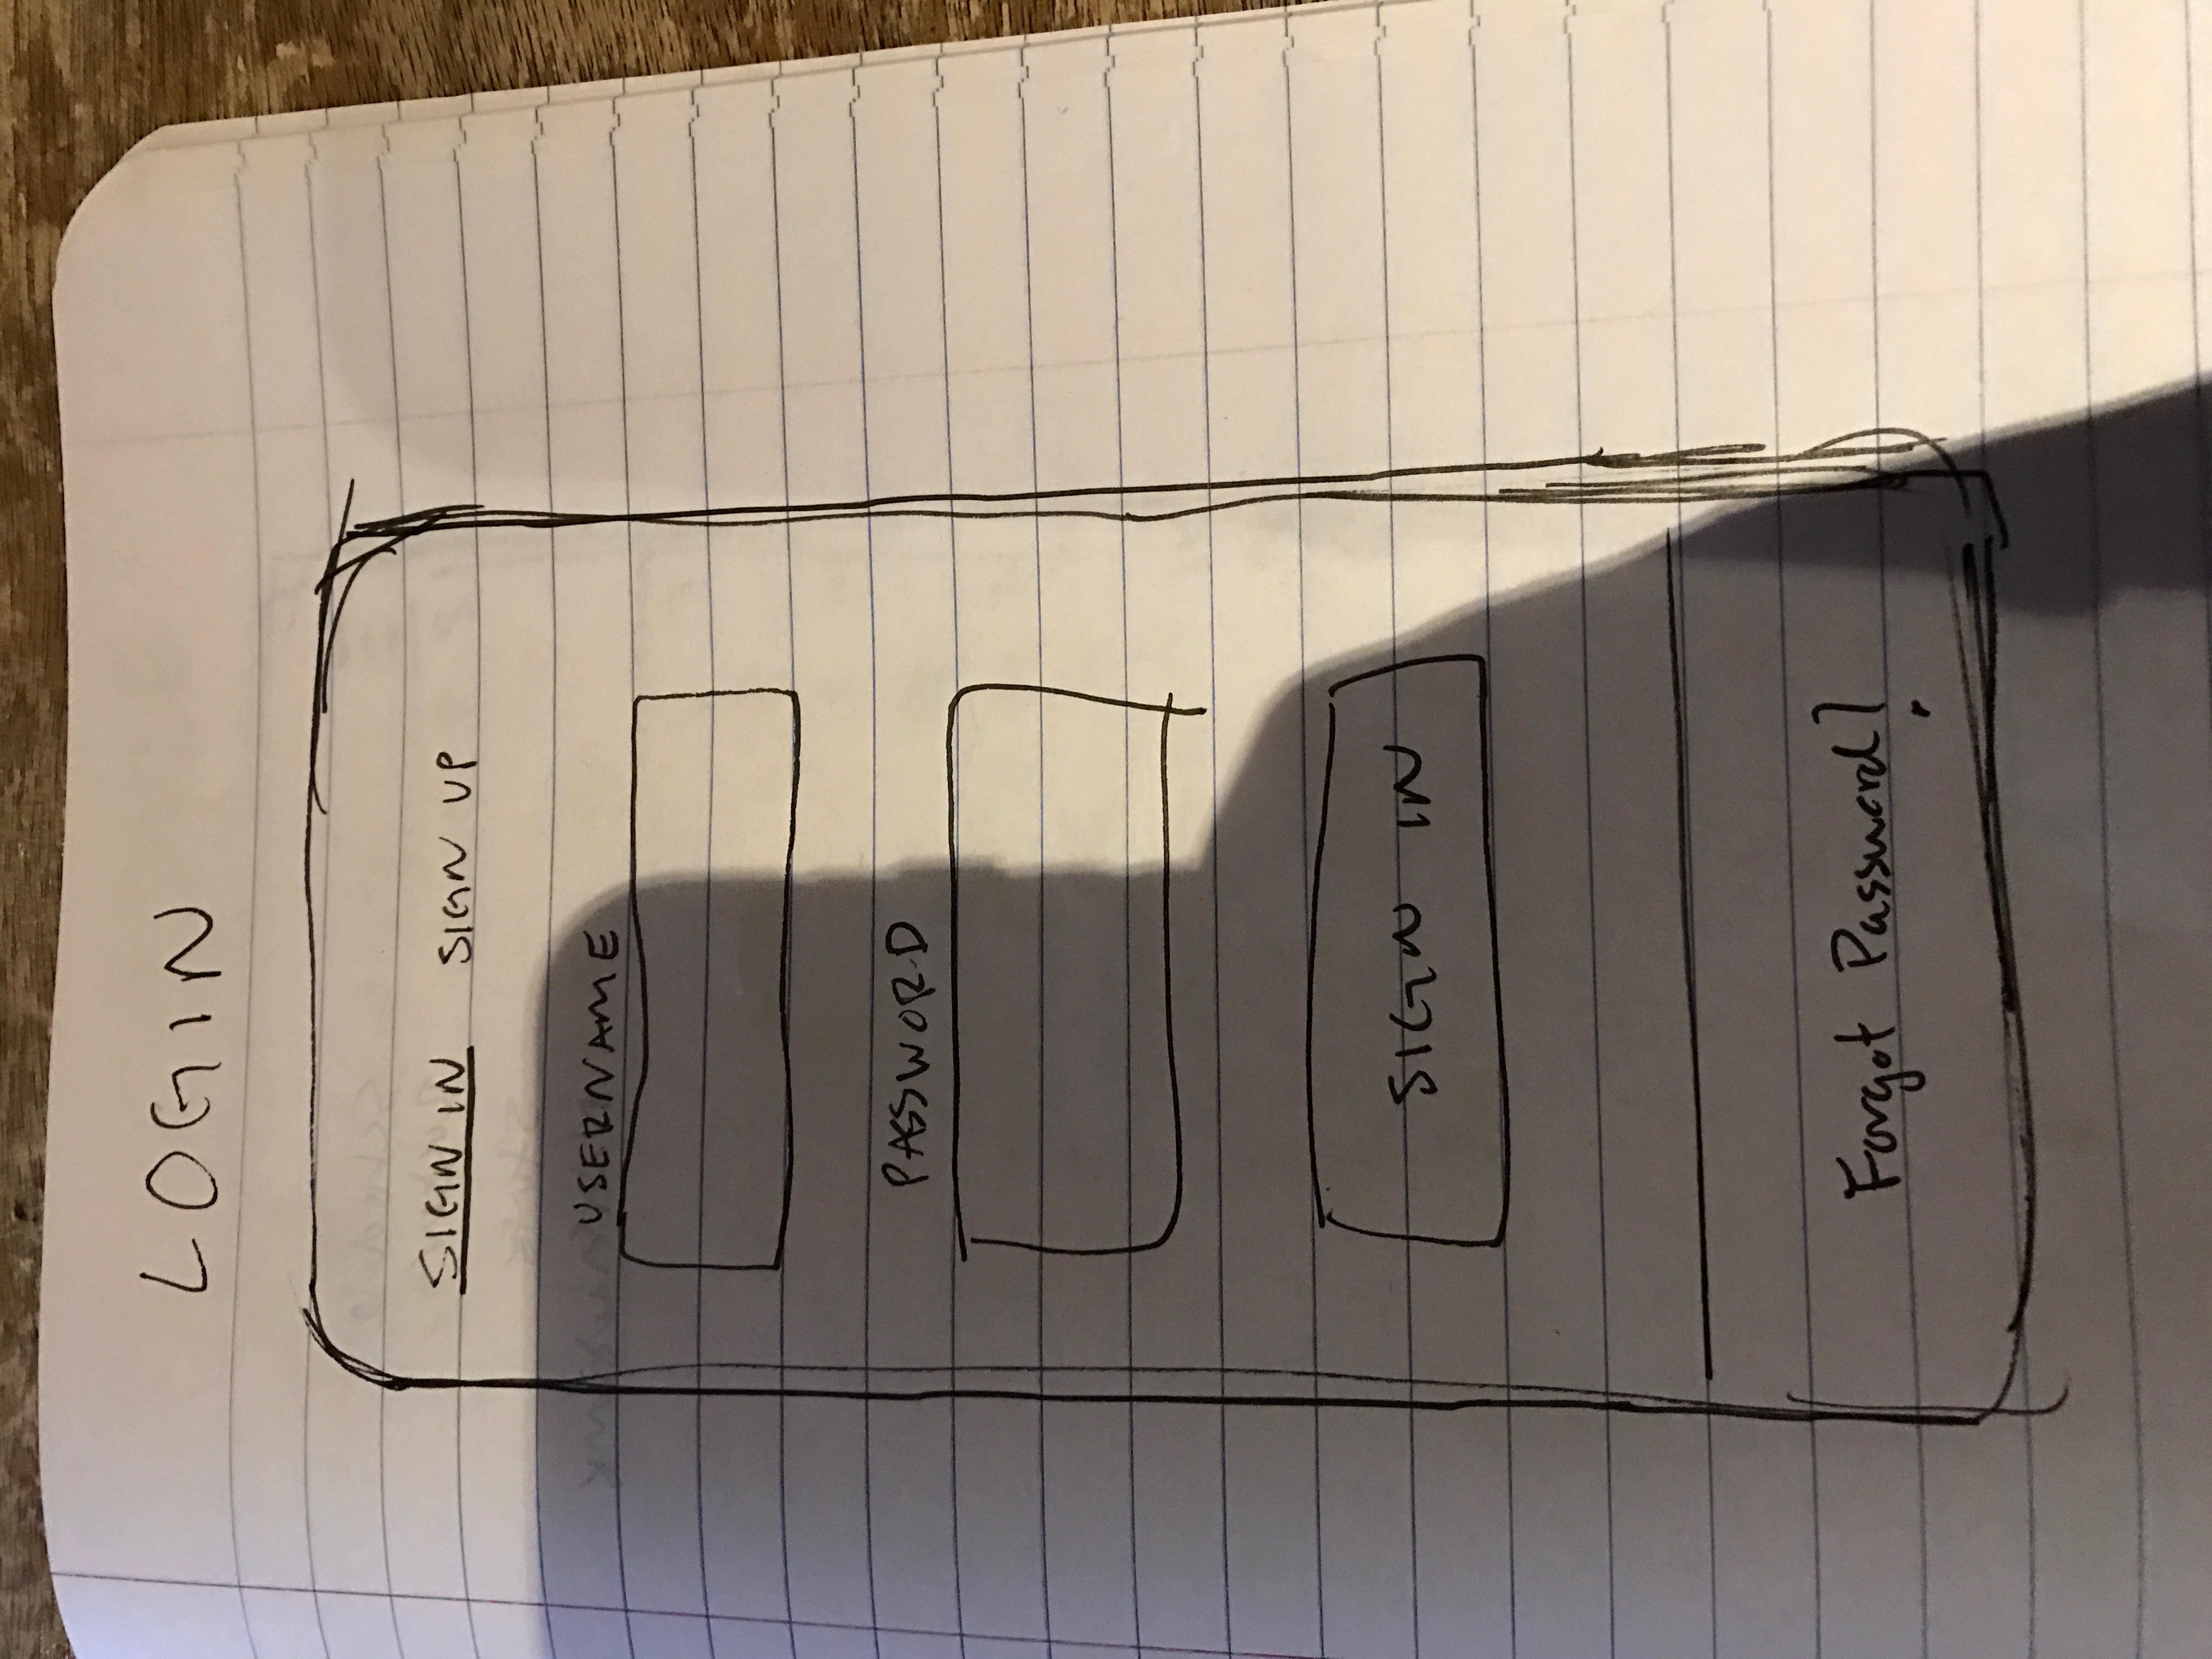 LOGIN
SIGN IN SIGN UP
USERNAME
PASSWORD
SIGN IN
Forgot Password?